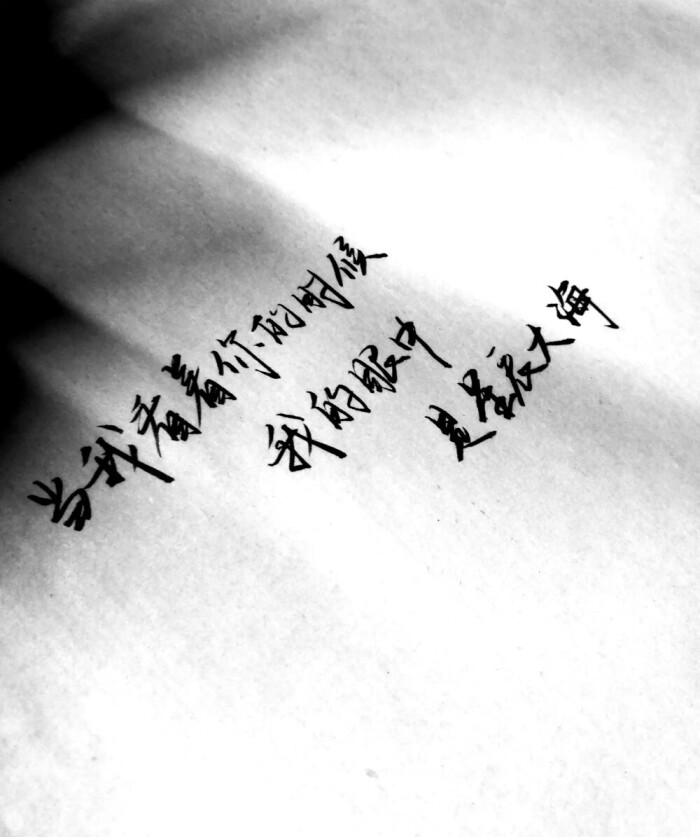 当我看着你的时候
我的眼中
是星辰大海